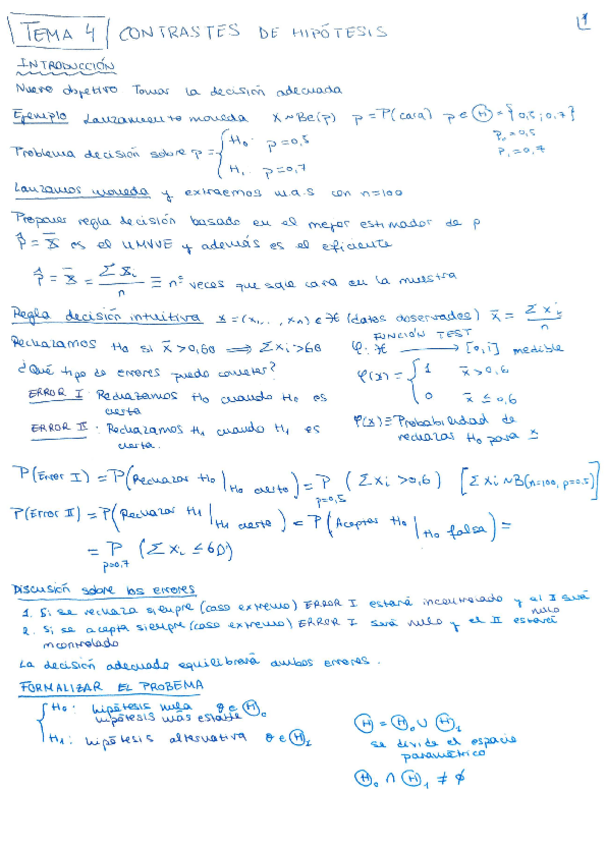 TEMA 4 CONTRASTES DE HIPÓTESIS 1
INTRODUCCIÓN
Nuevo objetivo Tomar la decisión adecuada
Ejemplo Lanzamiento moneda X ~ Be(p) p = P(cara) p ∈ Ⓗ = {0,5 ; 0,7}
p₀ = 0,5
p₁ = 0,7
Problema decisión sobre p = { H₀ : p = 0,5
H₁ : p = 0,7
Lanzamos moneda y extraemos m.a.s con n=100
Proponer regla decisión basado en el mejor estimador de p
p̂ = X̄ es el UMVUE y además es el eficiente
p̂ = X̄ = ΣXᵢ / n ≡ nº veces que sale cara en la muestra
Regla decisión intuitiva x = (x₁, ..., xₙ) ∈ 𝒳 (datos observados) x̄ = Σxᵢ / n
Rechazamos H₀ si x̄ > 0,60 ⟹ Σxᵢ > 60
FUNCIÓN TEST
φ: 𝒳 ⟶ [0,1] medible
¿Qué tipo de errores puedo cometer?
φ(x) = { 1 x̄ > 0,6
0 x̄ ≤ 0,6
ERROR I : Rechazamos H₀ cuando H₀ es
cierta
ERROR II : Rechazamos H₁ cuando H₁ es
cierta.
φ(x) ≡ Probabilidad de
rechazar H₀ para x
P(Error I) = P(Rechazar H₀ | H₀ cierto) = P p=0,5 (Σxᵢ > 0,6) [Σxᵢ ~ B(n=100, p=0.5)]
P(Error II) = P(Rechazar H₁ | H₁ cierto) = P(Aceptar H₀ | H₀ falsa) =
= P p=0,7 (Σxᵢ ≤ 60)
Discusión sobre los errores
1. Si se rechaza siempre (caso extremo) ERROR I estará incontrolado y el II será
nulo
2. Si se acepta siempre (caso extremo) ERROR I será nulo y el II estará
incontrolado
La decisión adecuada equilibrará ambos errores.
FORMALIZAR EL PROBEMA
{ H₀ : hipótesis nula θ ∈ Ⓗ₀
hipótesis más estable
H₁ : hipótesis alternativa θ ∈ Ⓗ₁
Ⓗ = Ⓗ₀ ∪ Ⓗ₁
se divide el espacio
paramétrico
Ⓗ₀ ∩ Ⓗ₁ ≠ ∅